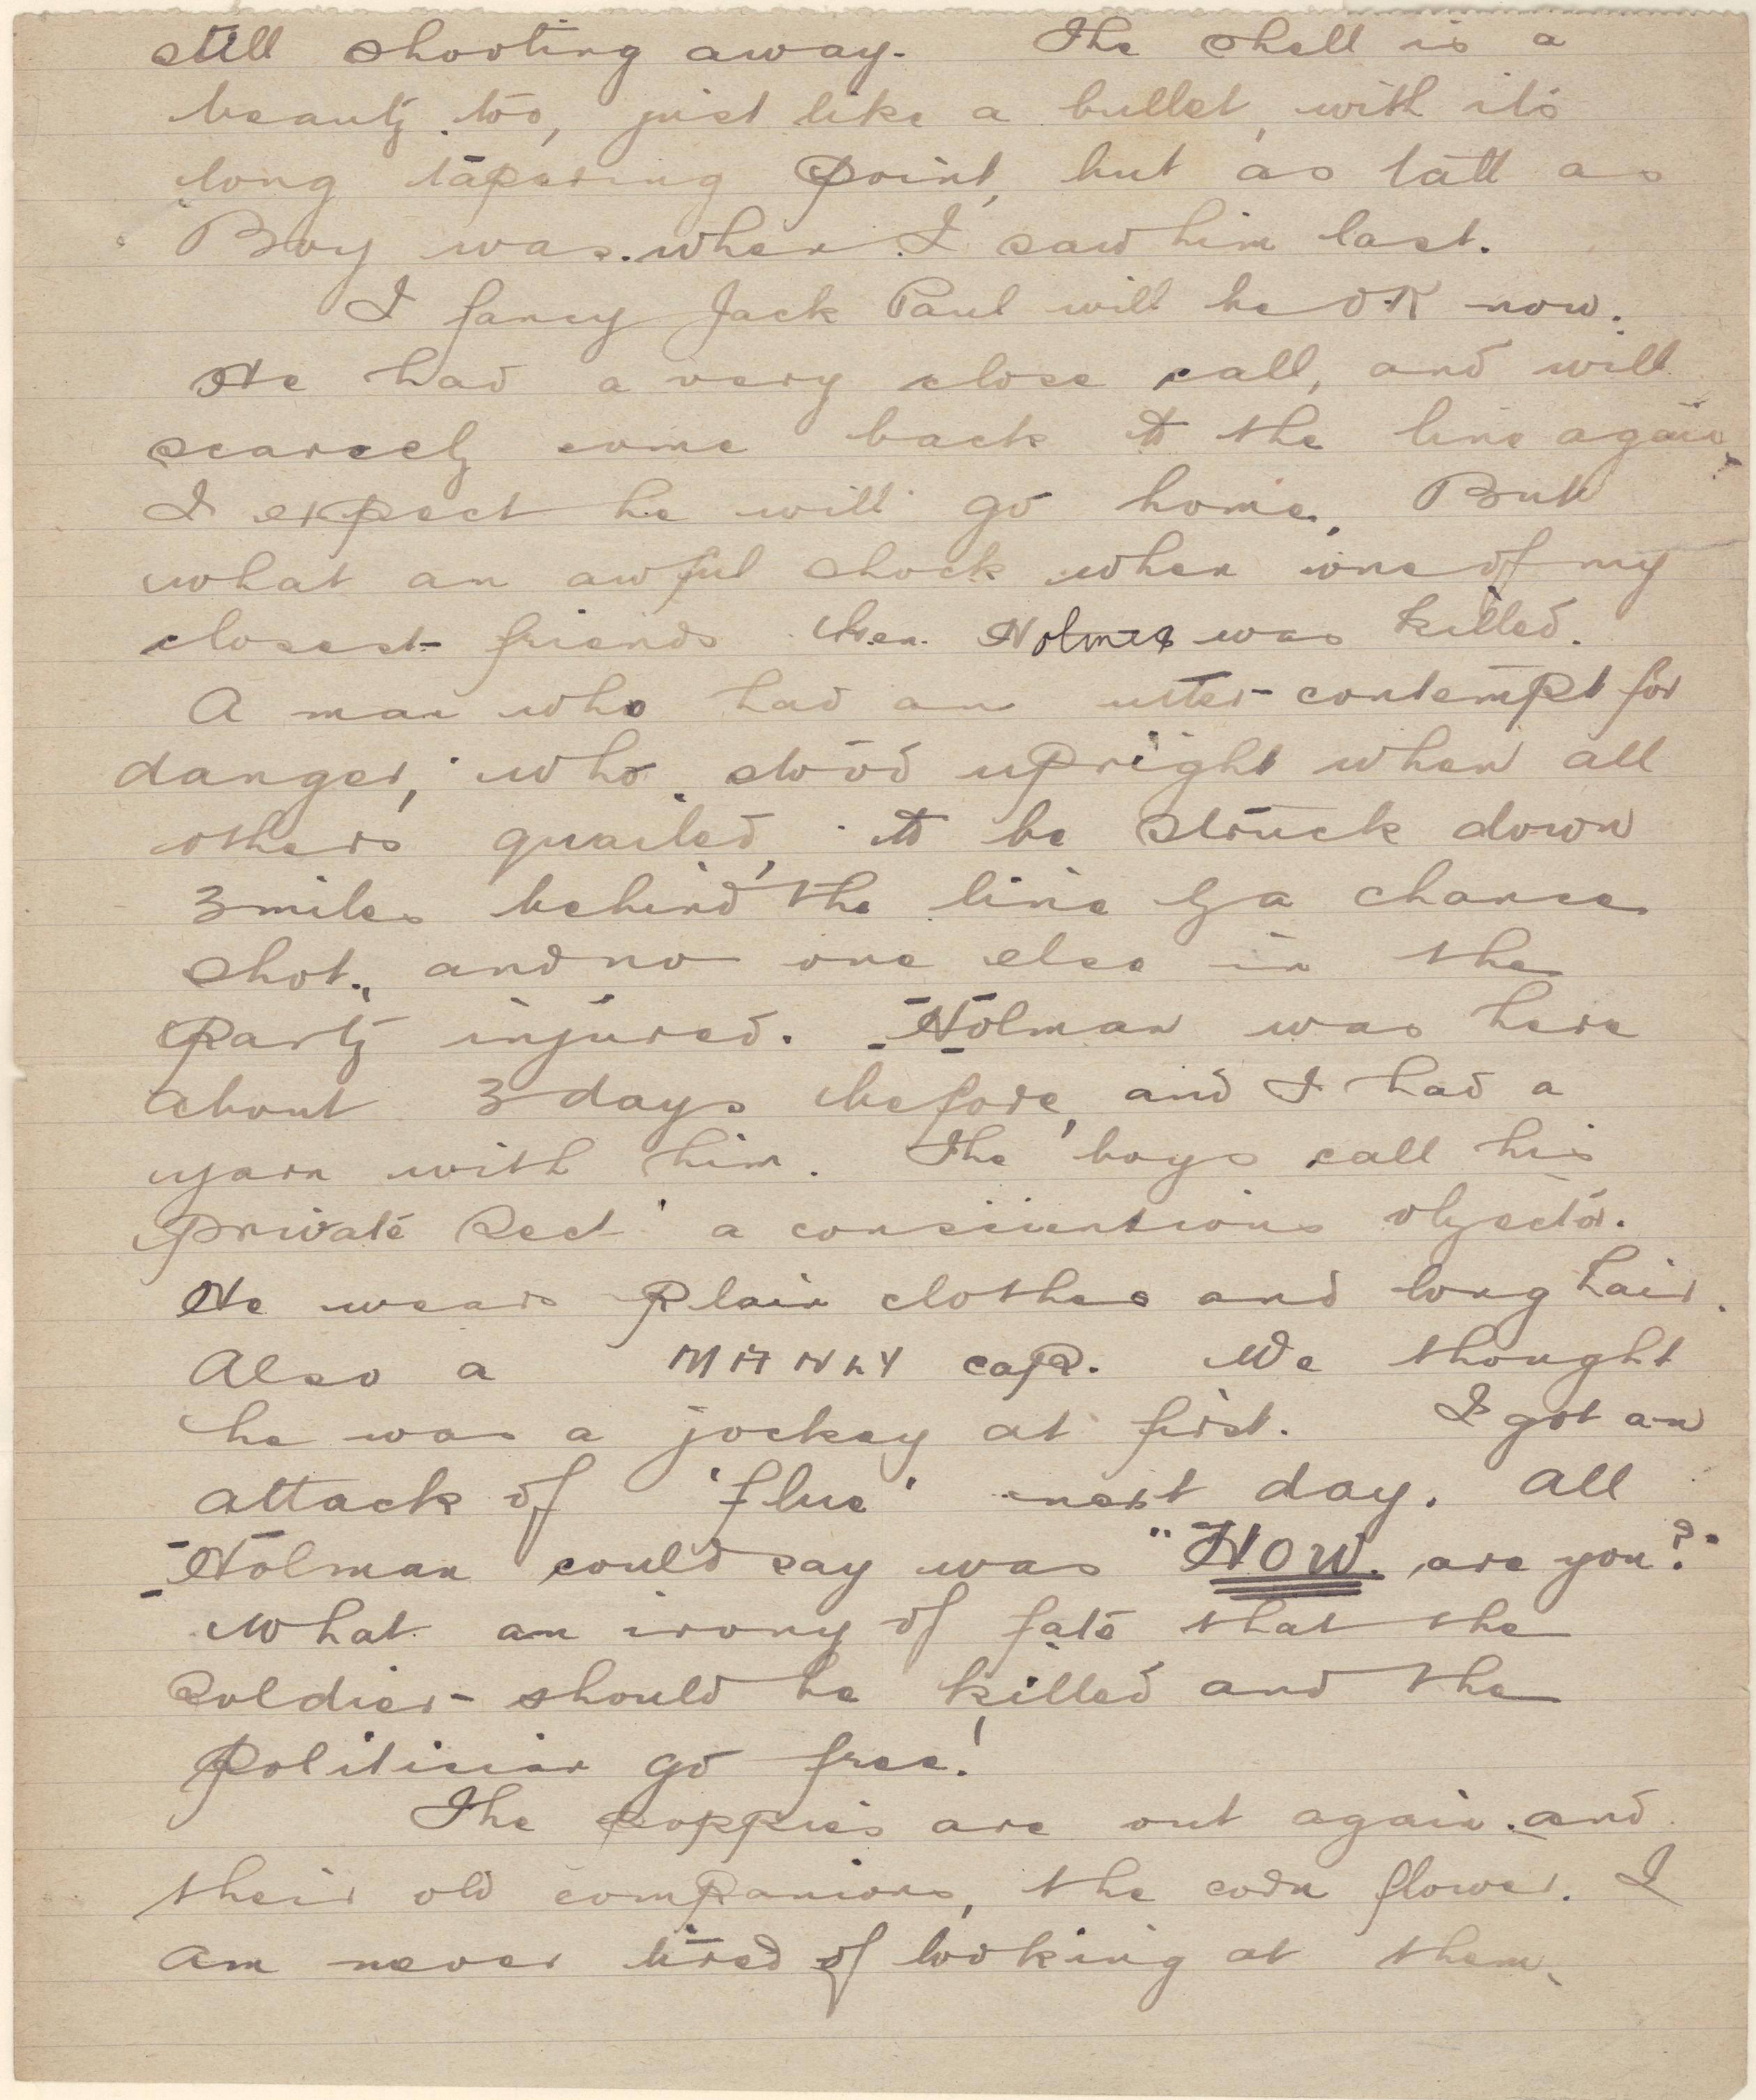 still shooting away. The shell is a
beauty too, just like a bullet, with its
long tapering point, but as tall as
Boy was when I saw him last.
I fancy Jack Paul will be OK now.
He had a very close call, and will
scarcely come back to the line again,
I expect he will go home. But
what an awful shock when one of my
closest friends Gen. Holmes was killed.
A man who had an utter contempt for
danger, who stood upright when all
others quailed, to be struck down
3 miles behind the line by a chance
shot, and no one else in the
party injured. Holman was here
about 3 days before, and I had a
yarn with him. The boys call his
private Sect' a conscientious objector.
He wears plain clothes and long hair.
Also a MANLY cap. We thought
he was a jockey at first. I got an
attack of 'flue' next day. All
Holman could say was "HOW are you?"
What an irony of fate that the
soldier should be killed and the
politician go free!
The poppies are out again and
their old companions, the corn flower. I
am never tired of looking at them.